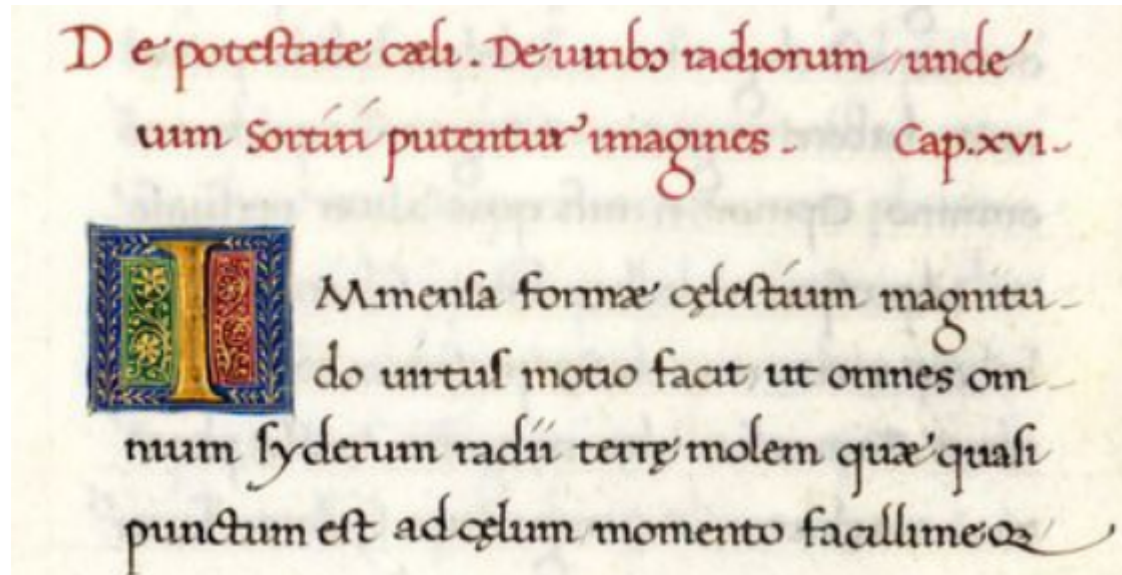 De potestate cæli. De uiribꝫ radiorum unde
uim Sortiri putentur imagines. Cap. XVI.
IMmensa formæ cęlestium magnitu-
do uirtus motio facit ut omnes om-
nium syderum radii terrę molem quæ quasi
punctum est ad cęlum momento facillimeqꝫ